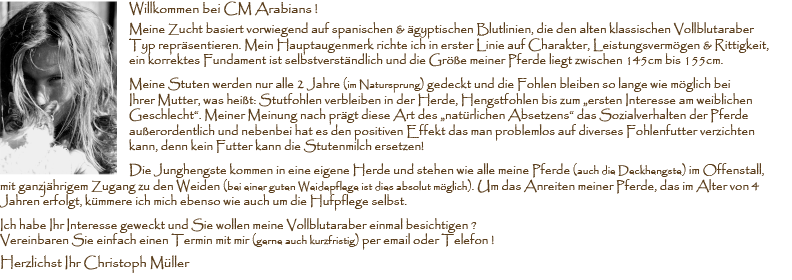 Willkommen bei CM Arabians !
Meine Zucht basiert vorwiegend auf spanischen & ägyptischen Blutlinien, die den alten klassischen Vollblutaraber
Typ repräsentieren. Mein Hauptaugenmerk richte ich in erster Linie auf Charakter, Leistungsvermögen & Rittigkeit,
ein korrektes Fundament ist selbstverständlich und die Größe meiner Pferde liegt zwischen 145cm bis 155cm.
Meine Stuten werden nur alle 2 Jahre (im Natursprung) gedeckt und die Fohlen bleiben so lange wie möglich bei
Ihrer Mutter, was heißt: Stutfohlen verbleiben in der Herde, Hengstfohlen bis zum „ersten Interesse am weiblichen
Geschlecht“. Meiner Meinung nach prägt diese Art des „natürlichen Absetzens“ das Sozialverhalten der Pferde
außerordentlich und nebenbei hat es den positiven Effekt das man problemlos auf diverses Fohlenfutter verzichten
kann, denn kein Futter kann die Stutenmilch ersetzen!
Die Junghengste kommen in eine eigene Herde und stehen wie alle meine Pferde (auch die Deckhengste) im Offenstall,
mit ganzjährigem Zugang zu den Weiden (bei einer guten Weidepflege ist dies absolut möglich). Um das Anreiten meiner Pferde, das im Alter von 4
Jahren erfolgt, kümmere ich mich ebenso wie auch um die Hufpflege selbst.
Ich habe Ihr Interesse geweckt und Sie wollen meine Vollblutaraber einmal besichtigen ?
Vereinbaren Sie einfach einen Termin mit mir (gerne auch kurzfristig) per email oder Telefon !
Herzlichst Ihr Christoph Müller